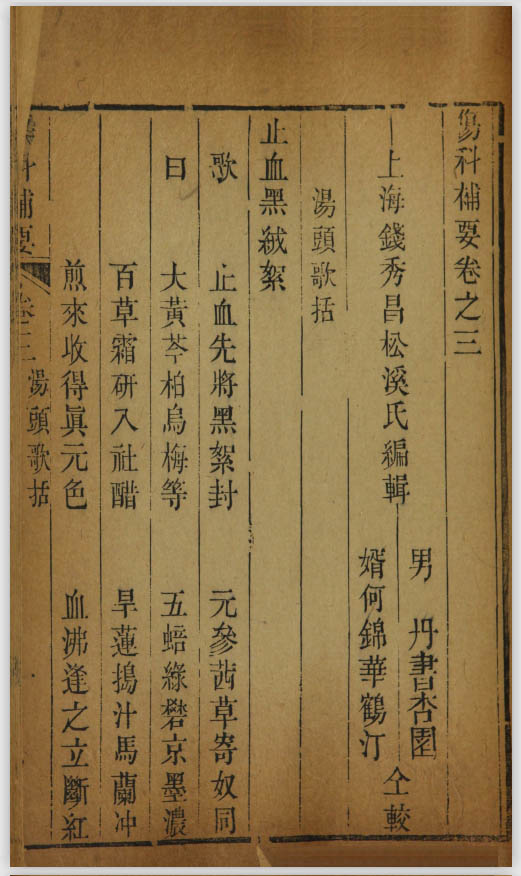 傷科補要卷之三
上海錢秀昌松溪氏編輯
男 丹書杏園
婿何錦華鶴汀
仝較
湯頭歌括
止血黑絨絮
歌 止血先將黑絮封 元參茜草寄奴同
曰 大黃芩柏烏梅等 五蛣綠礬京墨濃
百草霜研入社醋 旱蓮搗汁馬蘭冲
煎來收得眞元色 血沸逢之立斷紅
科補要 卷三 湯頭歌括